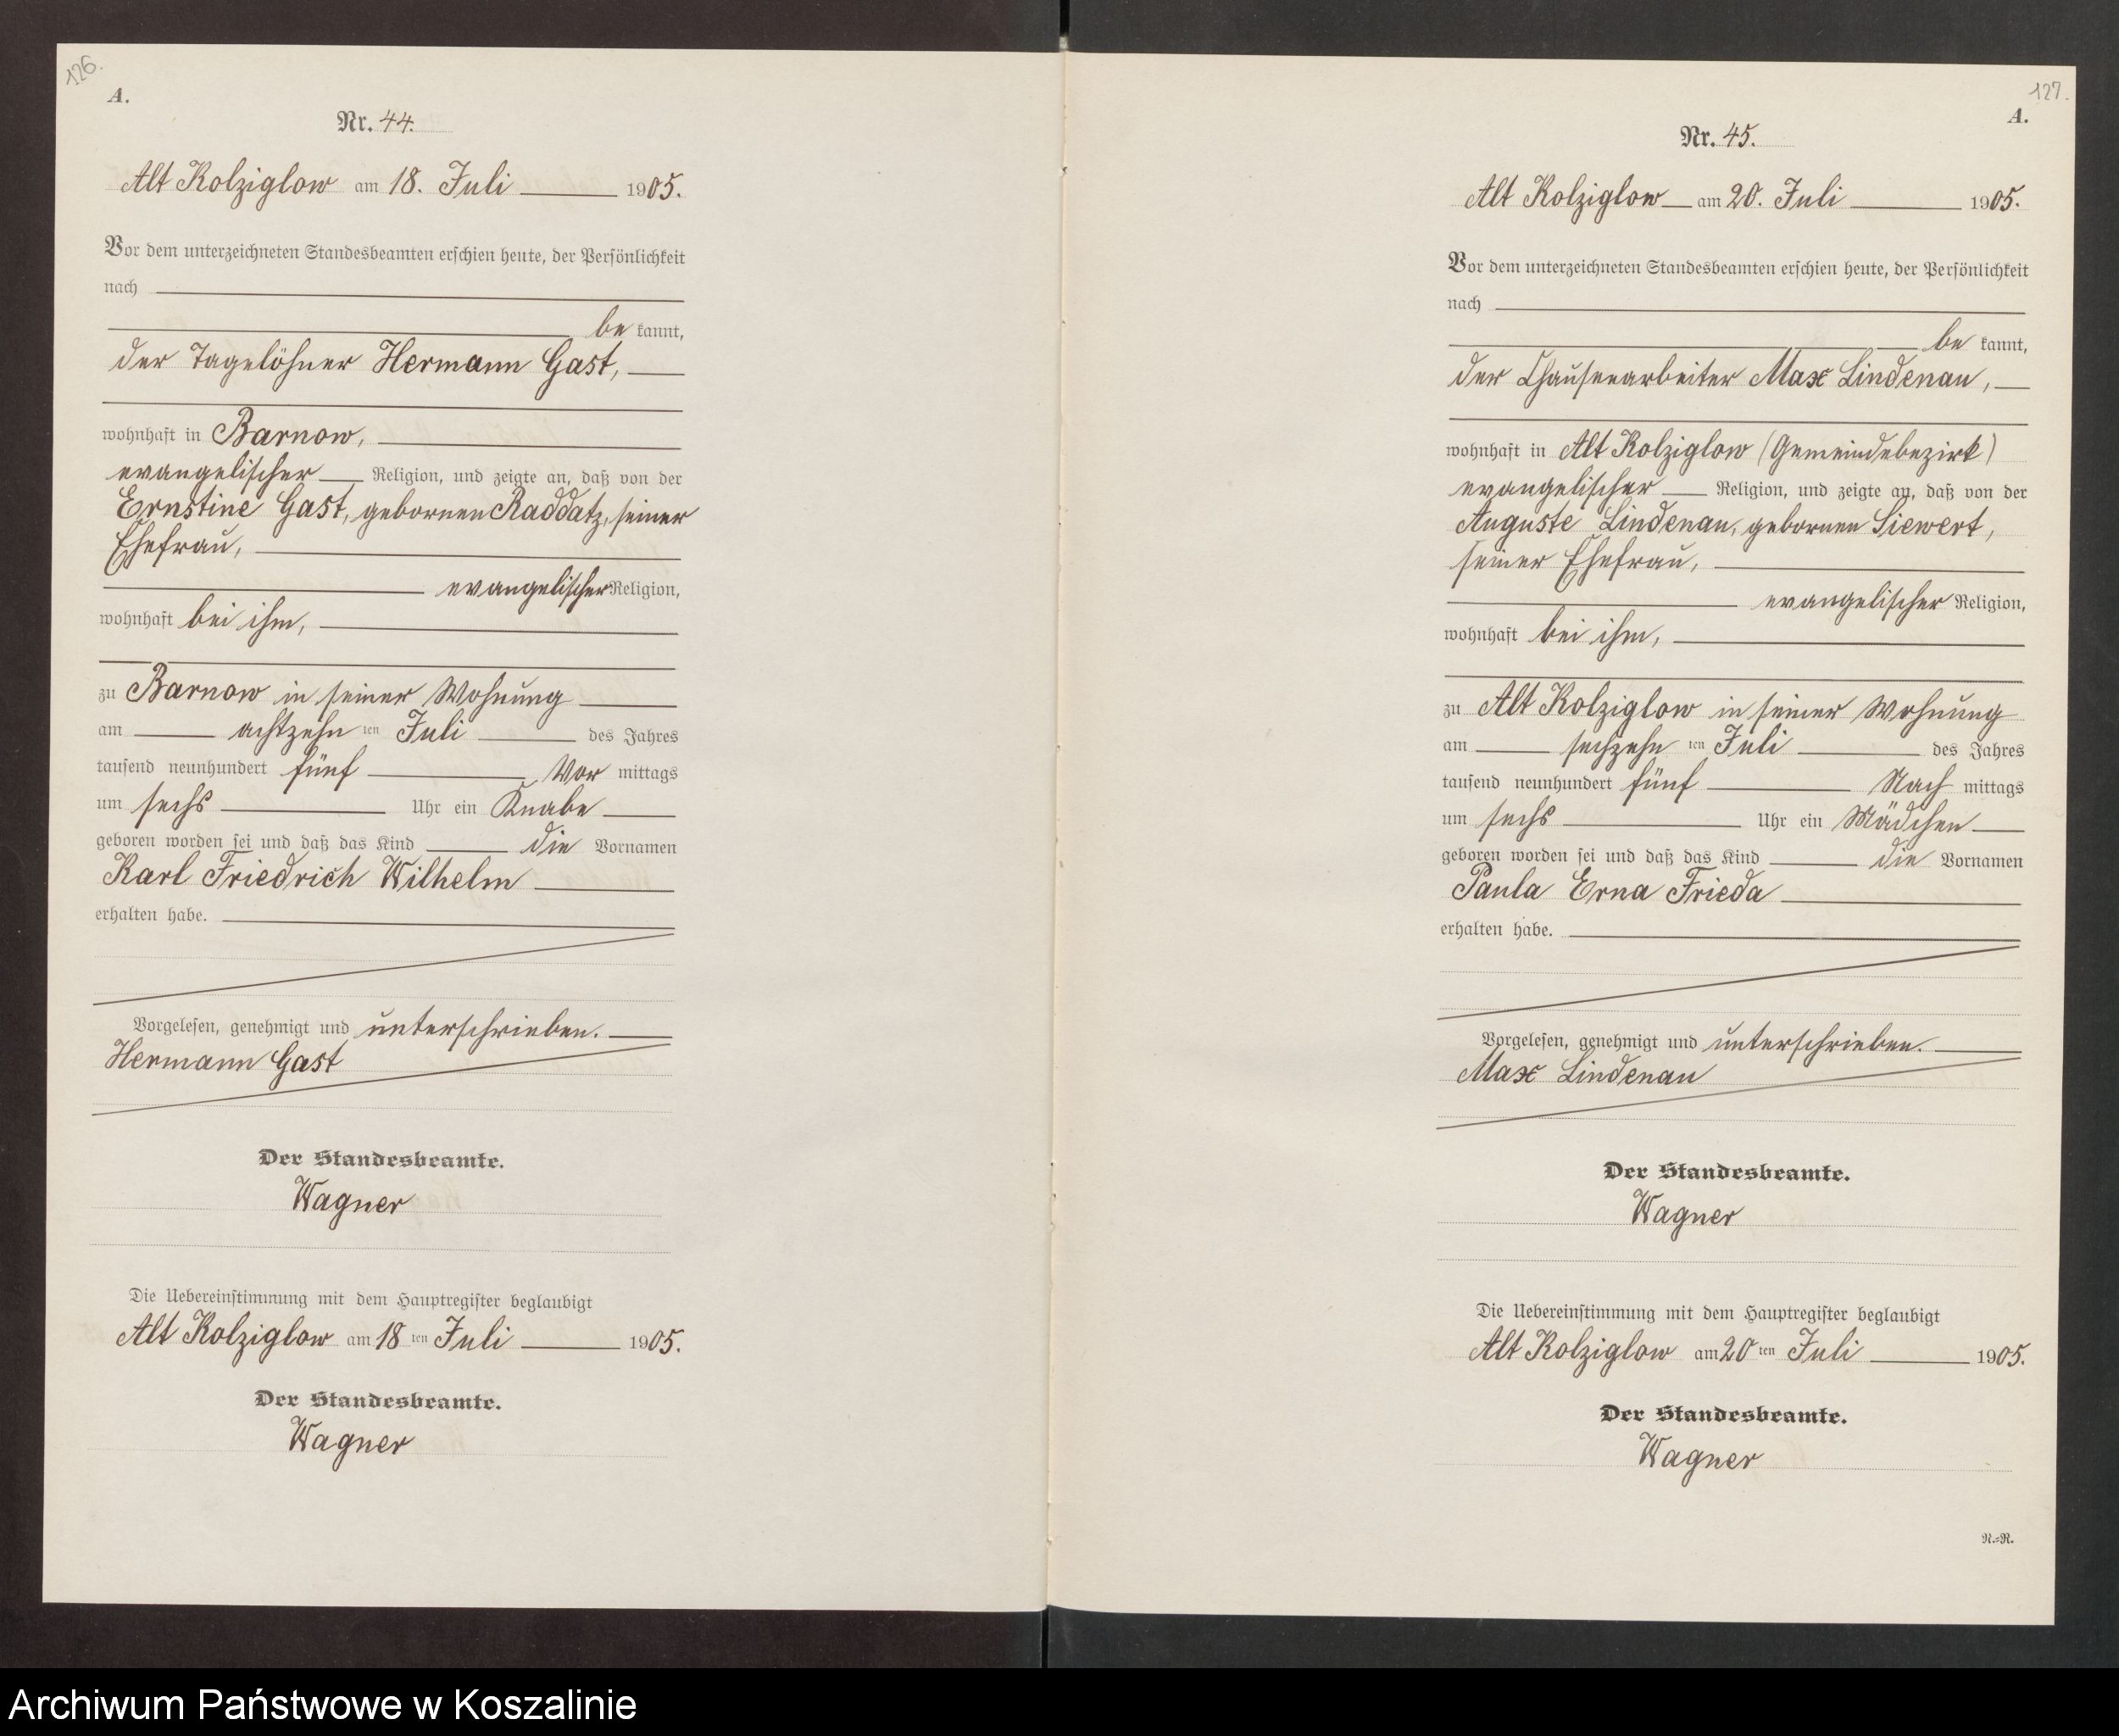 126.
A.
Nr. 44.
Alt Kolziglow am 18. Juli 1905.
Vor dem unterzeichneten Standesbeamten erschien heute, der Persönlichkeit
nach
be kannt,
der Tagelöhner Hermann Gast,
wohnhaft in Barnow,
evangelischer Religion, und zeigte an, daß von der
Ernstine Gast, gebornen Raddatz, seiner
Ehefrau,
evangelischer Religion,
wohnhaft bei ihm,
zu Barnow in seiner Wohnung
am achtzehn ten Juli des Jahres
tausend neunhundert fünf Vor mittags
um sechs Uhr ein Knabe
geboren worden sei und daß das Kind die Vornamen
Karl Friedrich Wilhelm
erhalten habe.
Vorgelesen, genehmigt und unterschrieben.
Hermann Gast
Der Standesbeamte.
Wagner
Die Uebereinstimmung mit dem Hauptregister beglaubigt
Alt Kolziglow am 18 ten Juli 1905.
Der Standesbeamte.
Wagner
127.
A.
Nr. 45.
Alt Kolziglow am 20. Juli 1905.
Vor dem unterzeichneten Standesbeamten erschien heute, der Persönlichkeit
nach
be kannt,
der Chauseearbeiter Max Lindenau,
wohnhaft in Alt Kolziglow (Gemeindebezirk)
evangelischer Religion, und zeigte an, daß von der
Auguste Lindenau, gebornen Siewert,
seiner Ehefrau,
evangelischer Religion,
wohnhaft bei ihm,
zu Alt Kolziglow in seiner Wohnung
am sechzehn ten Juli des Jahres
tausend neunhundert fünf Nach mittags
um sechs Uhr ein Mädchen
geboren worden sei und daß das Kind die Vornamen
Paula Erna Frieda
erhalten habe.
Vorgelesen, genehmigt und unterschrieben.
Max Lindenau
Der Standesbeamte.
Wagner
Die Uebereinstimmung mit dem Hauptregister beglaubigt
Alt Kolziglow am 20 ten Juli 1905.
Der Standesbeamte.
Wagner
N.=R.
Archiwum Państwowe w Koszalinie